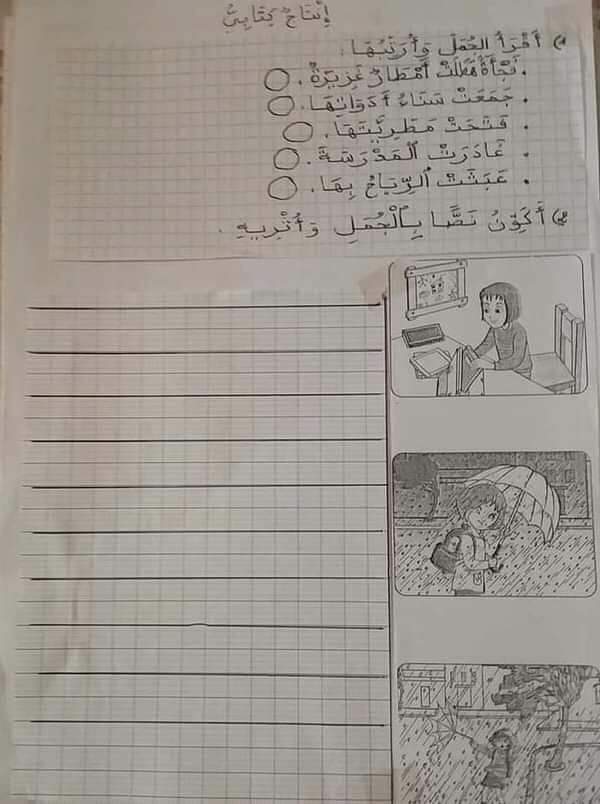 إِنْتَاجٌ كِتَابِيٌّ
1) أَقْرَأُ الجُمَلَ وَأُرَتِّبُهَا.
. فَجْأَةً هَطَلَتْ أَمْطَارٌ غَزِيرَةٌ.
. جَمَعَتْ سَنَاءُ أَدَوَاتِهَا.
. فَتَحَتْ مَطَرِيَّتَهَا.
. غَادَرَتْ الْمَدْرَسَةَ.
. عَبَثَتْ الرِّيَاحُ بِهَا.
2) أُكَوِّنُ نَصًّا بِالْجُمَلِ وَأُثْرِيهِ.